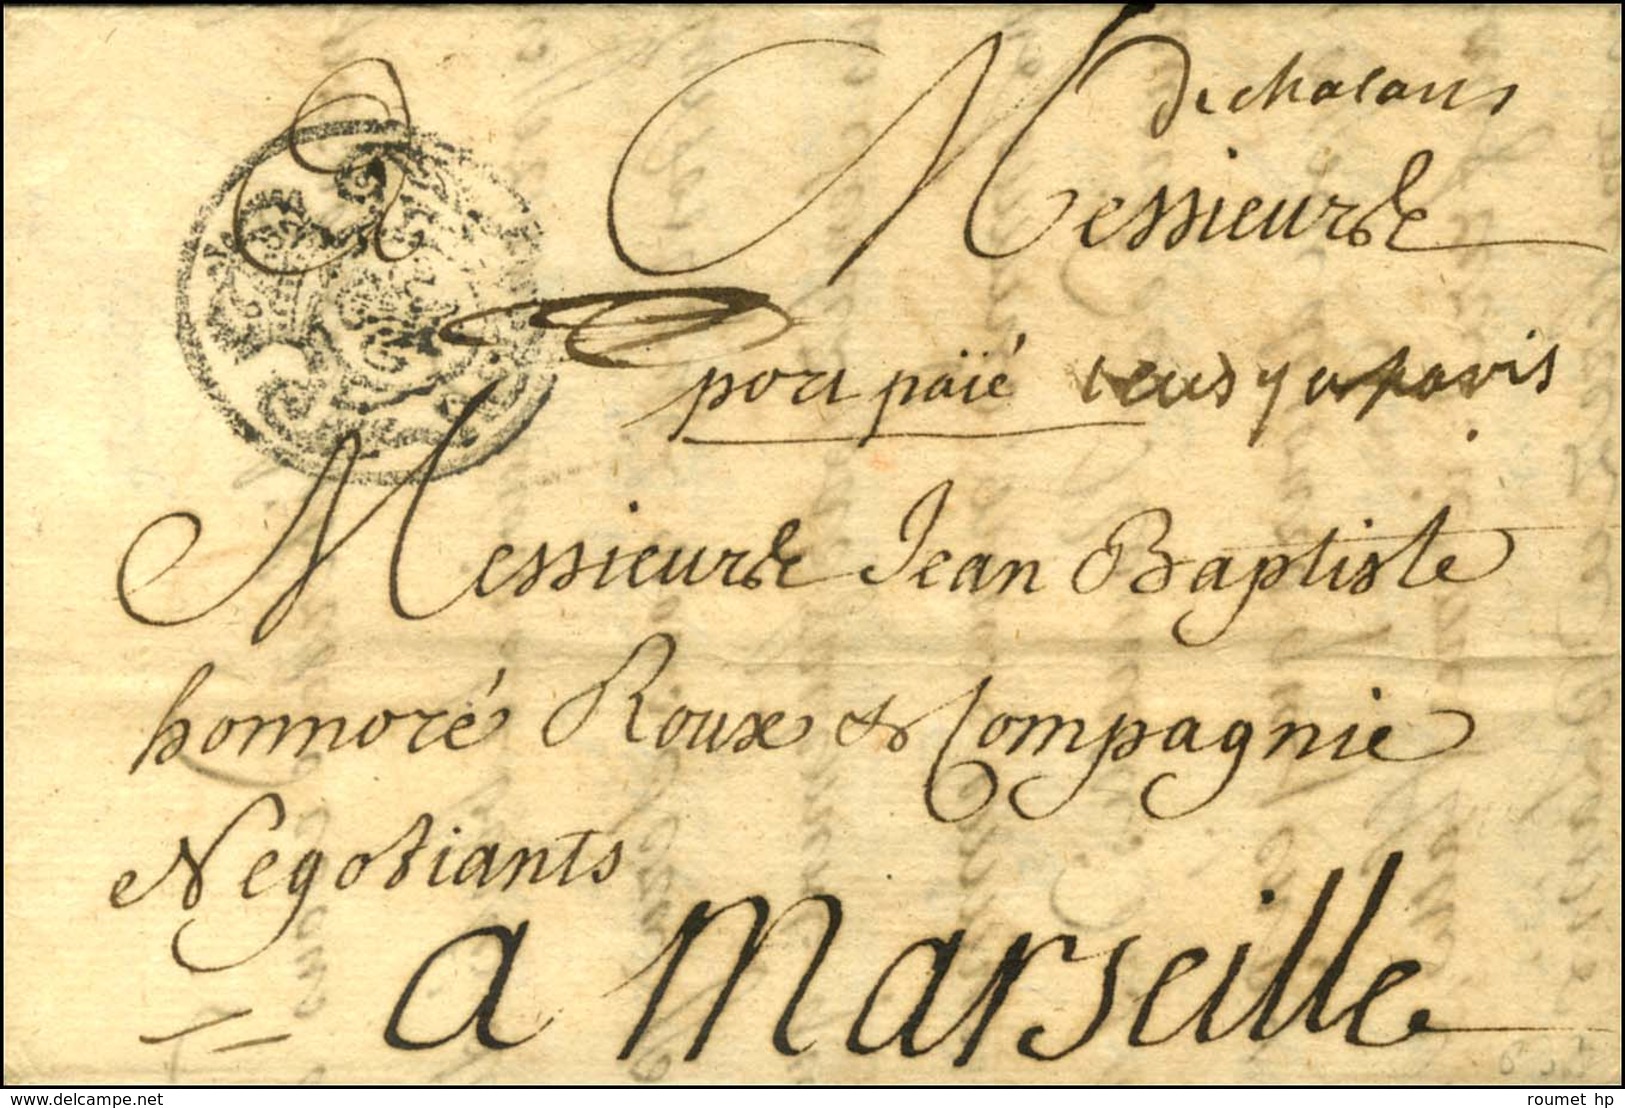 de chalans
A Messieurs
port païé
Messieurs Jean Baptiste
honnoré Roux & Compagnie
Negotiants
a Marseille
www.delcampe.net
roumet hp